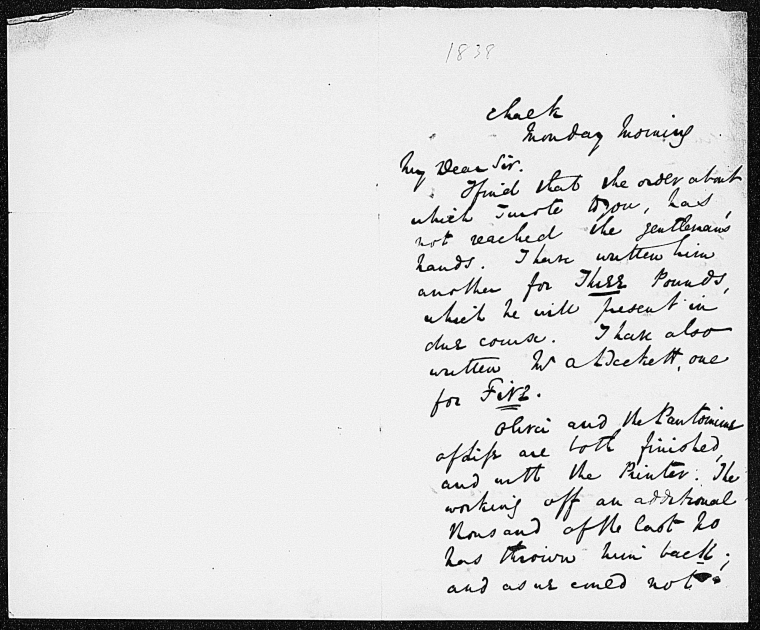 1838
Chalk
Monday Morning
My Dear Sir.
I find that the order about
which I wrote to you, has
not reached the gentleman's
hands. I have written him
another for Three Pounds,
which he will present in
due course. I have also
written Mr a Beckett, one
for Five.
Oliver and the Pantomime
of Life are both finished,
and with the Printer. The
working off an additional
thousand of the last No
has thrown him back;
and as we could not